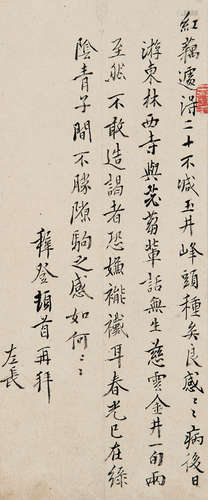 紅藕遽得二十不減玉井峰頭種矣良感〻病後日
游東林西寺與苾蒭輩話無生慈雲金井一夕兩
至然不敢造謁者恐嫌褦襶耳春光已在綠
陰青子間不勝隙駒之感如何〻〻
穉登頓首再拜
左長